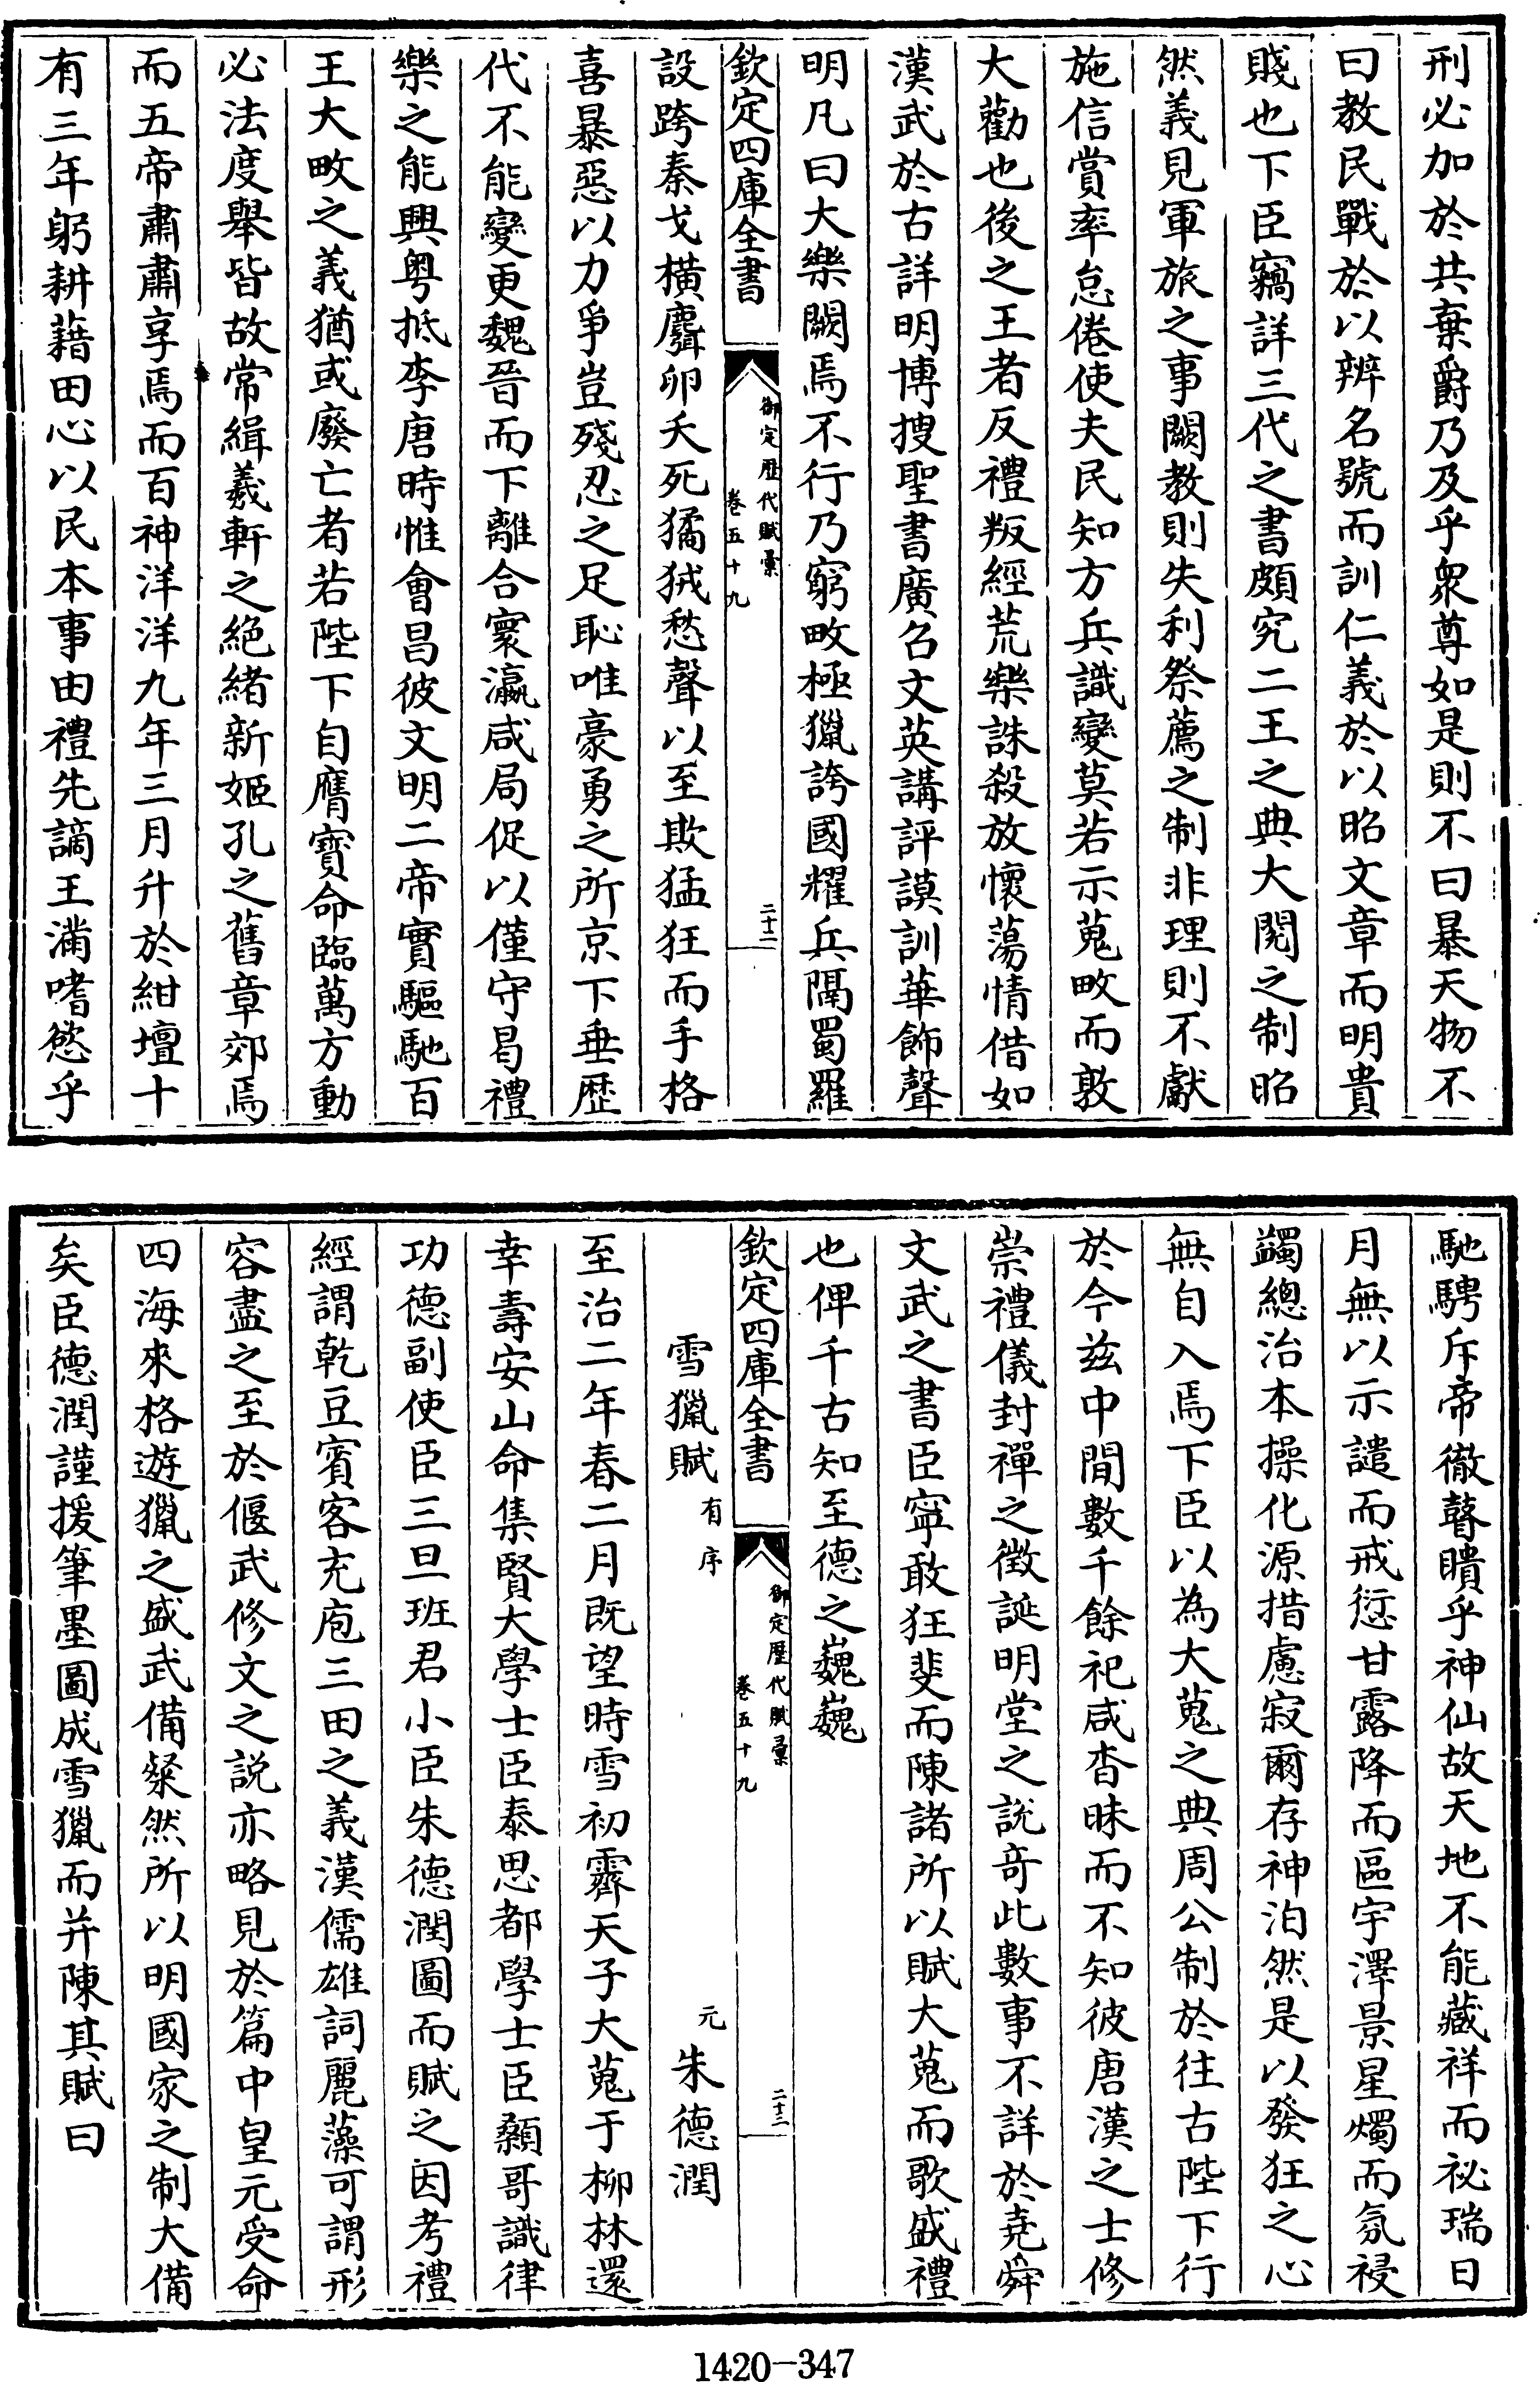 刑必加於共棄爵乃及乎衆尊如是則不曰暴天物不
曰教民戰於以辨名號而訓仁義於以昭文章而明貴
賤也下臣竊詳三代之書頗究二王之典大閱之制昭
然義見軍旅之事闕教則失利祭薦之制非理則不獻
施信賞率怠倦使夫民知方兵識變莫若示蒐畋而敦
大勸也後之王者反禮叛經荒樂誅殺放懷蕩情借如
漢武於古詳明博搜聖書廣召文英講評謨訓華飾聲
明凡曰大樂闕焉不行乃窮畋極獵誇國耀兵隔蜀羅
欽定四庫全書
御定歷代賦彙
卷五十九
二十二
設跨秦戈橫麛卵夭死猵狨愁聲以至欺猛狂而手格
喜暴惡以力爭豈殘忍之足恥唯豪勇之所京下垂歷
代不能變更魏晉而下離合寰瀛咸局促以僅守曷禮
樂之能興粵抵李唐時惟會昌彼文明二帝實驅馳百
王大畋之義猶或廢亡者若陛下自膺寶命臨萬方動
必法度舉皆故常緝羲軒之絕緒新姬孔之舊章郊焉
而五帝肅肅享焉而百神洋洋九年三月升於紺壇十
有三年躬耕藉田心以民本事由禮先謫王滿嗜慾乎
馳騁斥帝徹瞽瞶乎神仙故天地不能藏祥而祕瑞日
月無以示譴而戒愆甘露降而區宇澤景星燭而氛祲
蠲總治本操化源措慮寂爾存神泊然是以發狂之心
無自入焉下臣以為大蒐之典周公制於往古陛下行
於今茲中間數千餘祀咸杳昧而不知彼唐漢之士修
崇禮儀封禪之徵誕明堂之說奇此數事不詳於堯舜
文武之書臣寧敢狂斐而陳諸所以賦大蒐而歌盛禮
也俾千古知至德之巍巍
欽定四庫全書
御定歷代賦彙
卷五十九
二十三
雪獵賦 有序 元 朱德潤
至治二年春二月既望時雪初霽天子大蒐于柳林還
幸壽安山命集賢大學士臣泰思都學士臣顙哥識律
功德副使臣三旦班君小臣朱德潤圖而賦之因考禮
經謂乾豆賓客充庖三田之義漢儒雄詞麗藻可謂形
容盡之至於偃武修文之說亦略見於篇中皇元受命
四海來格遊獵之盛武備粲然所以明國家之制大備
矣臣德潤謹援筆墨圖成雪獵而并陳其賦曰
1420-347